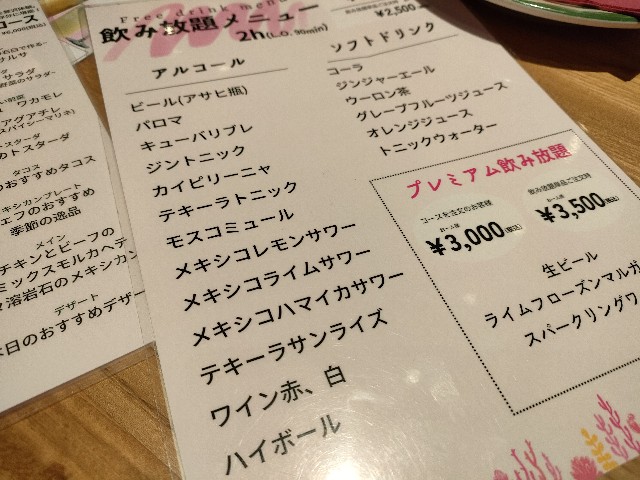 コース
¥6,000(税込)
サルサ
サラダ
ワカモレ
アグアチレ
(スパイシーマリネ)
トスターダ
のトスターダ
タコス
のおすすめタコス
キシカンプレート
ェフのおすすめ
季節の逸品
メイン
チキンとビーフの
ミックスモルカヘテ
溶岩石のメキシカン
デザート
本日のおすすめデザー
Free drink menu
飲み放題メニュー
2h(L.O.90min)
¥2,500(税込)
アルコール
ビール(アサヒ瓶)
パロマ
キューバリブレ
ジントニック
カイピリーニャ
テキーラトニック
モスコミュール
メキシコレモンサワー
メキシコライムサワー
メキシコハマイカサワー
テキーラサンライズ
ワイン赤、白
ハイボール
ソフトドリンク
コーラ
ジンジャーエール
ウーロン茶
グレープフルーツジュース
オレンジジュース
トニックウォーター
プレミアム飲み放題
コースを注文のお客様
お一人様
¥3,000(税込)
飲み放題単品ご注文時
お一人様
¥3,500(税込)
生ビール
ライムフローズンマルガ
スパークリングワ